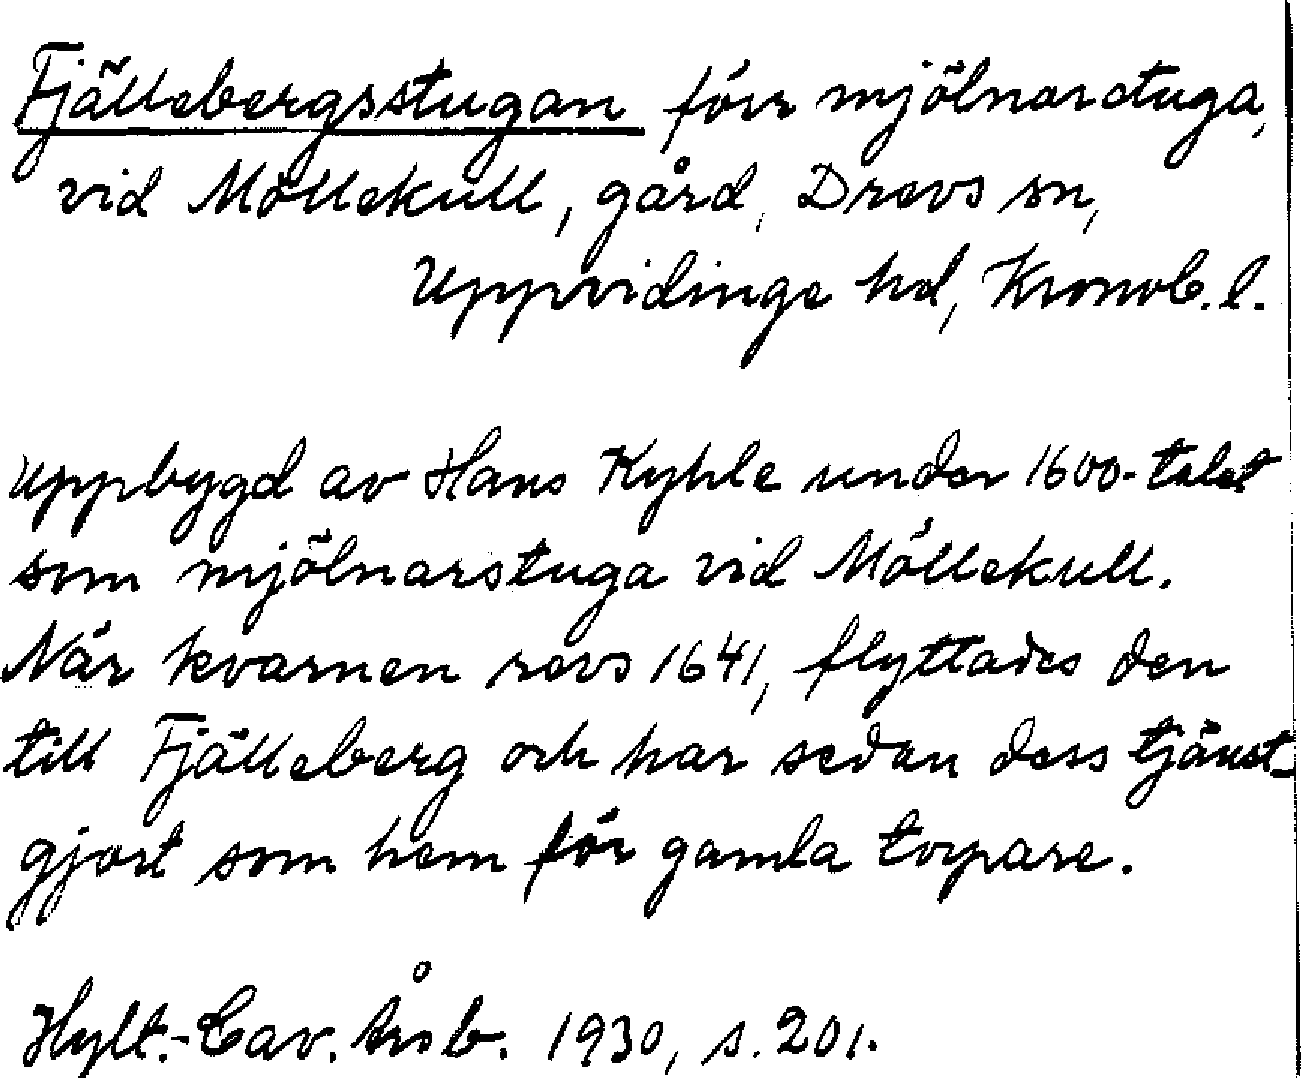 Fjällebergsstugan förr mjölnarstuga,
vid Möllekull, gård, Drevs sn,
Uppvidinge hd, Kronob. l.
Uppbygd av Hans Kyhle under 1600-talet
som mjölnarstuga vid Möllekull.
När kvarnen revs 1641, flyttades den
till Fjälleberg och har sedan dess tjänst-
gjort som hem för gamla torpare.
Hylt.-Cav. Årsb. 1930, s. 201.